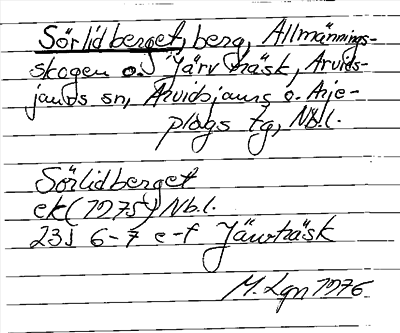 Sörlidberget, berg, Allmännings-
skogen o. Järvträsk, Arvids-
jaurs sn, Arvidsjaurs o. Arje-
plogs tg, Nb.l.
Sörlidberget
ek (1975) Nb.l.
23J 6-7 e-f Järvträsk
M. Lgn 1976